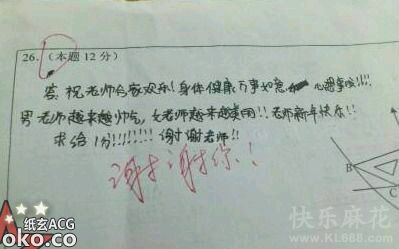 26. (本题12分)
答:祝老师合家欢乐!身体健康万事如意 心想事成!!!!
男老师越来越帅气,女老师越来越美丽!!老师新年快乐!!
求给1分!!!!!!!! 谢谢老师!!
谢谢你!!
B
C
快乐麻花
www.KL688.com
纸玄ACG
oko.co